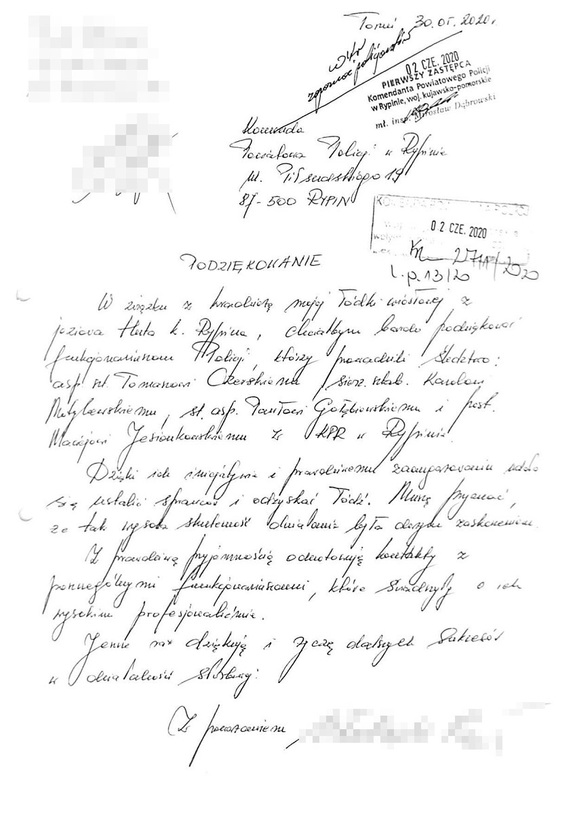 Toruń 30.05.2020r
02 CZE. 2020
PIERWSZY ZASTĘPCA
Komendanta Powiatowego Policji
w Rypinie, woj. kujawsko-pomorskie
mł. insp. Mirosław Dąbrowski
Komenda
Powiatowa Policji w Rypinie
ul. Piłsudskiego 19
87-500 RYPIN
02 CZE. 2020
L.p. 13/20
PODZIĘKOWANIE
W związku z kradzieżą mojej łódki wiosłowej z
jeziora Huta k. Rypina, chciałbym bardzo podziękować
funkcjonariuszom Policji, którzy prowadzili śledztwo:
asp. szt. Tomaszowi Czerskiemu, sierż. sztab. Karolowi
st. asp. Pawłowi Gołębiewskiemu i post.
Maciejowi Jesionkowskiemu z KPP w Rypinie.
Dzięki ich i prawdziwemu zaangażowaniu udało
się ustalić sprawców i odzyskać łódź. Muszę przyznać,
że tak wysoka skuteczność działania była dużym zaskoczeniem.
Z prawdziwą przyjemnością odnotowuję kontakty z
poszczególnymi funkcjonariuszami, które świadczyły o ich
wysokim profesjonalizmie.
Jeszcze raz dziękuję i życzę dalszych sukcesów
w działalności służbowej.
Z poważaniem,